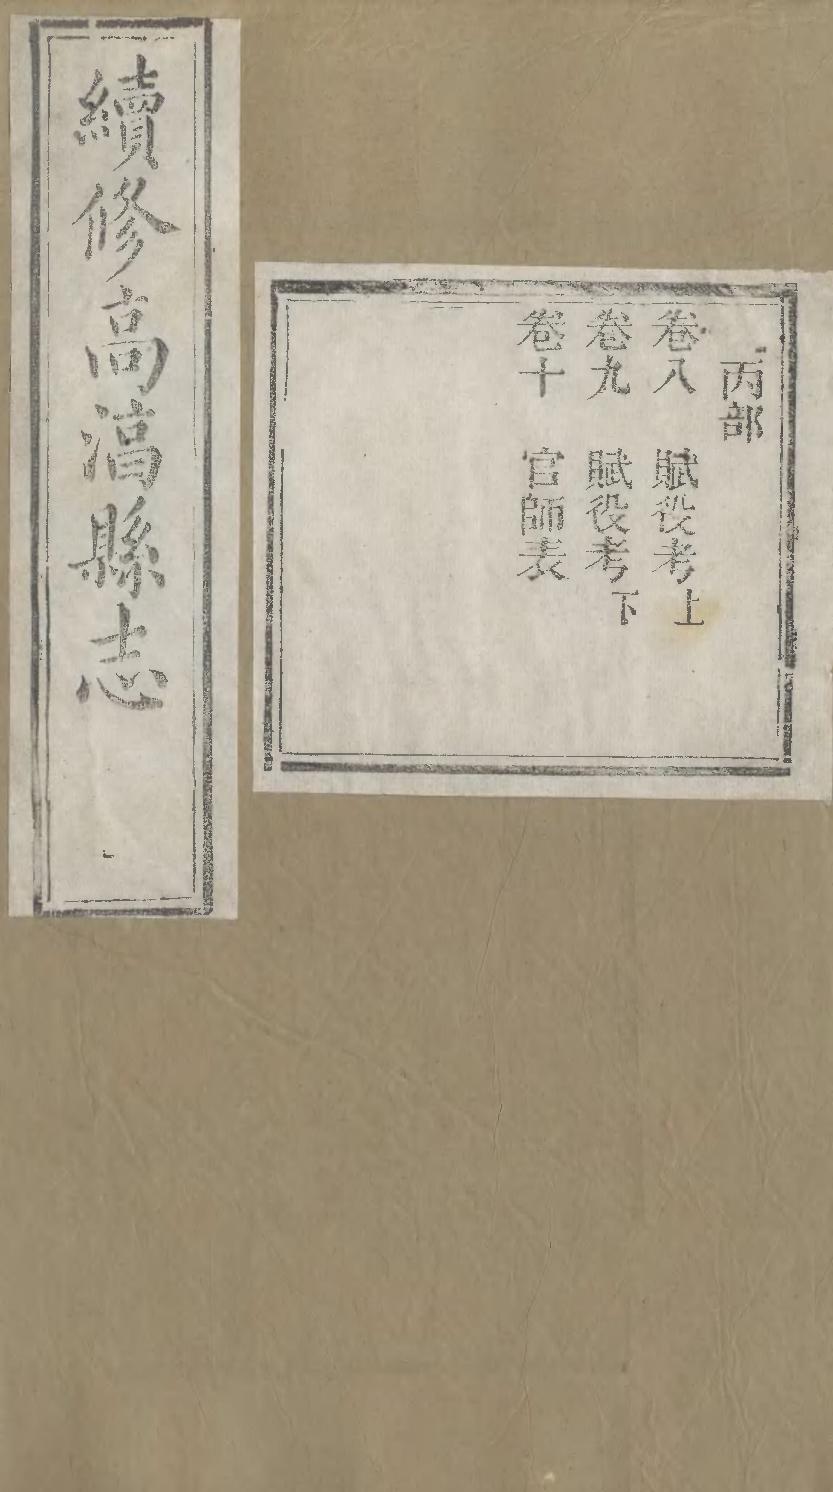 丙部
卷八 賦役考上
卷九 賦役考下
卷十 官師表
續修高淳縣志